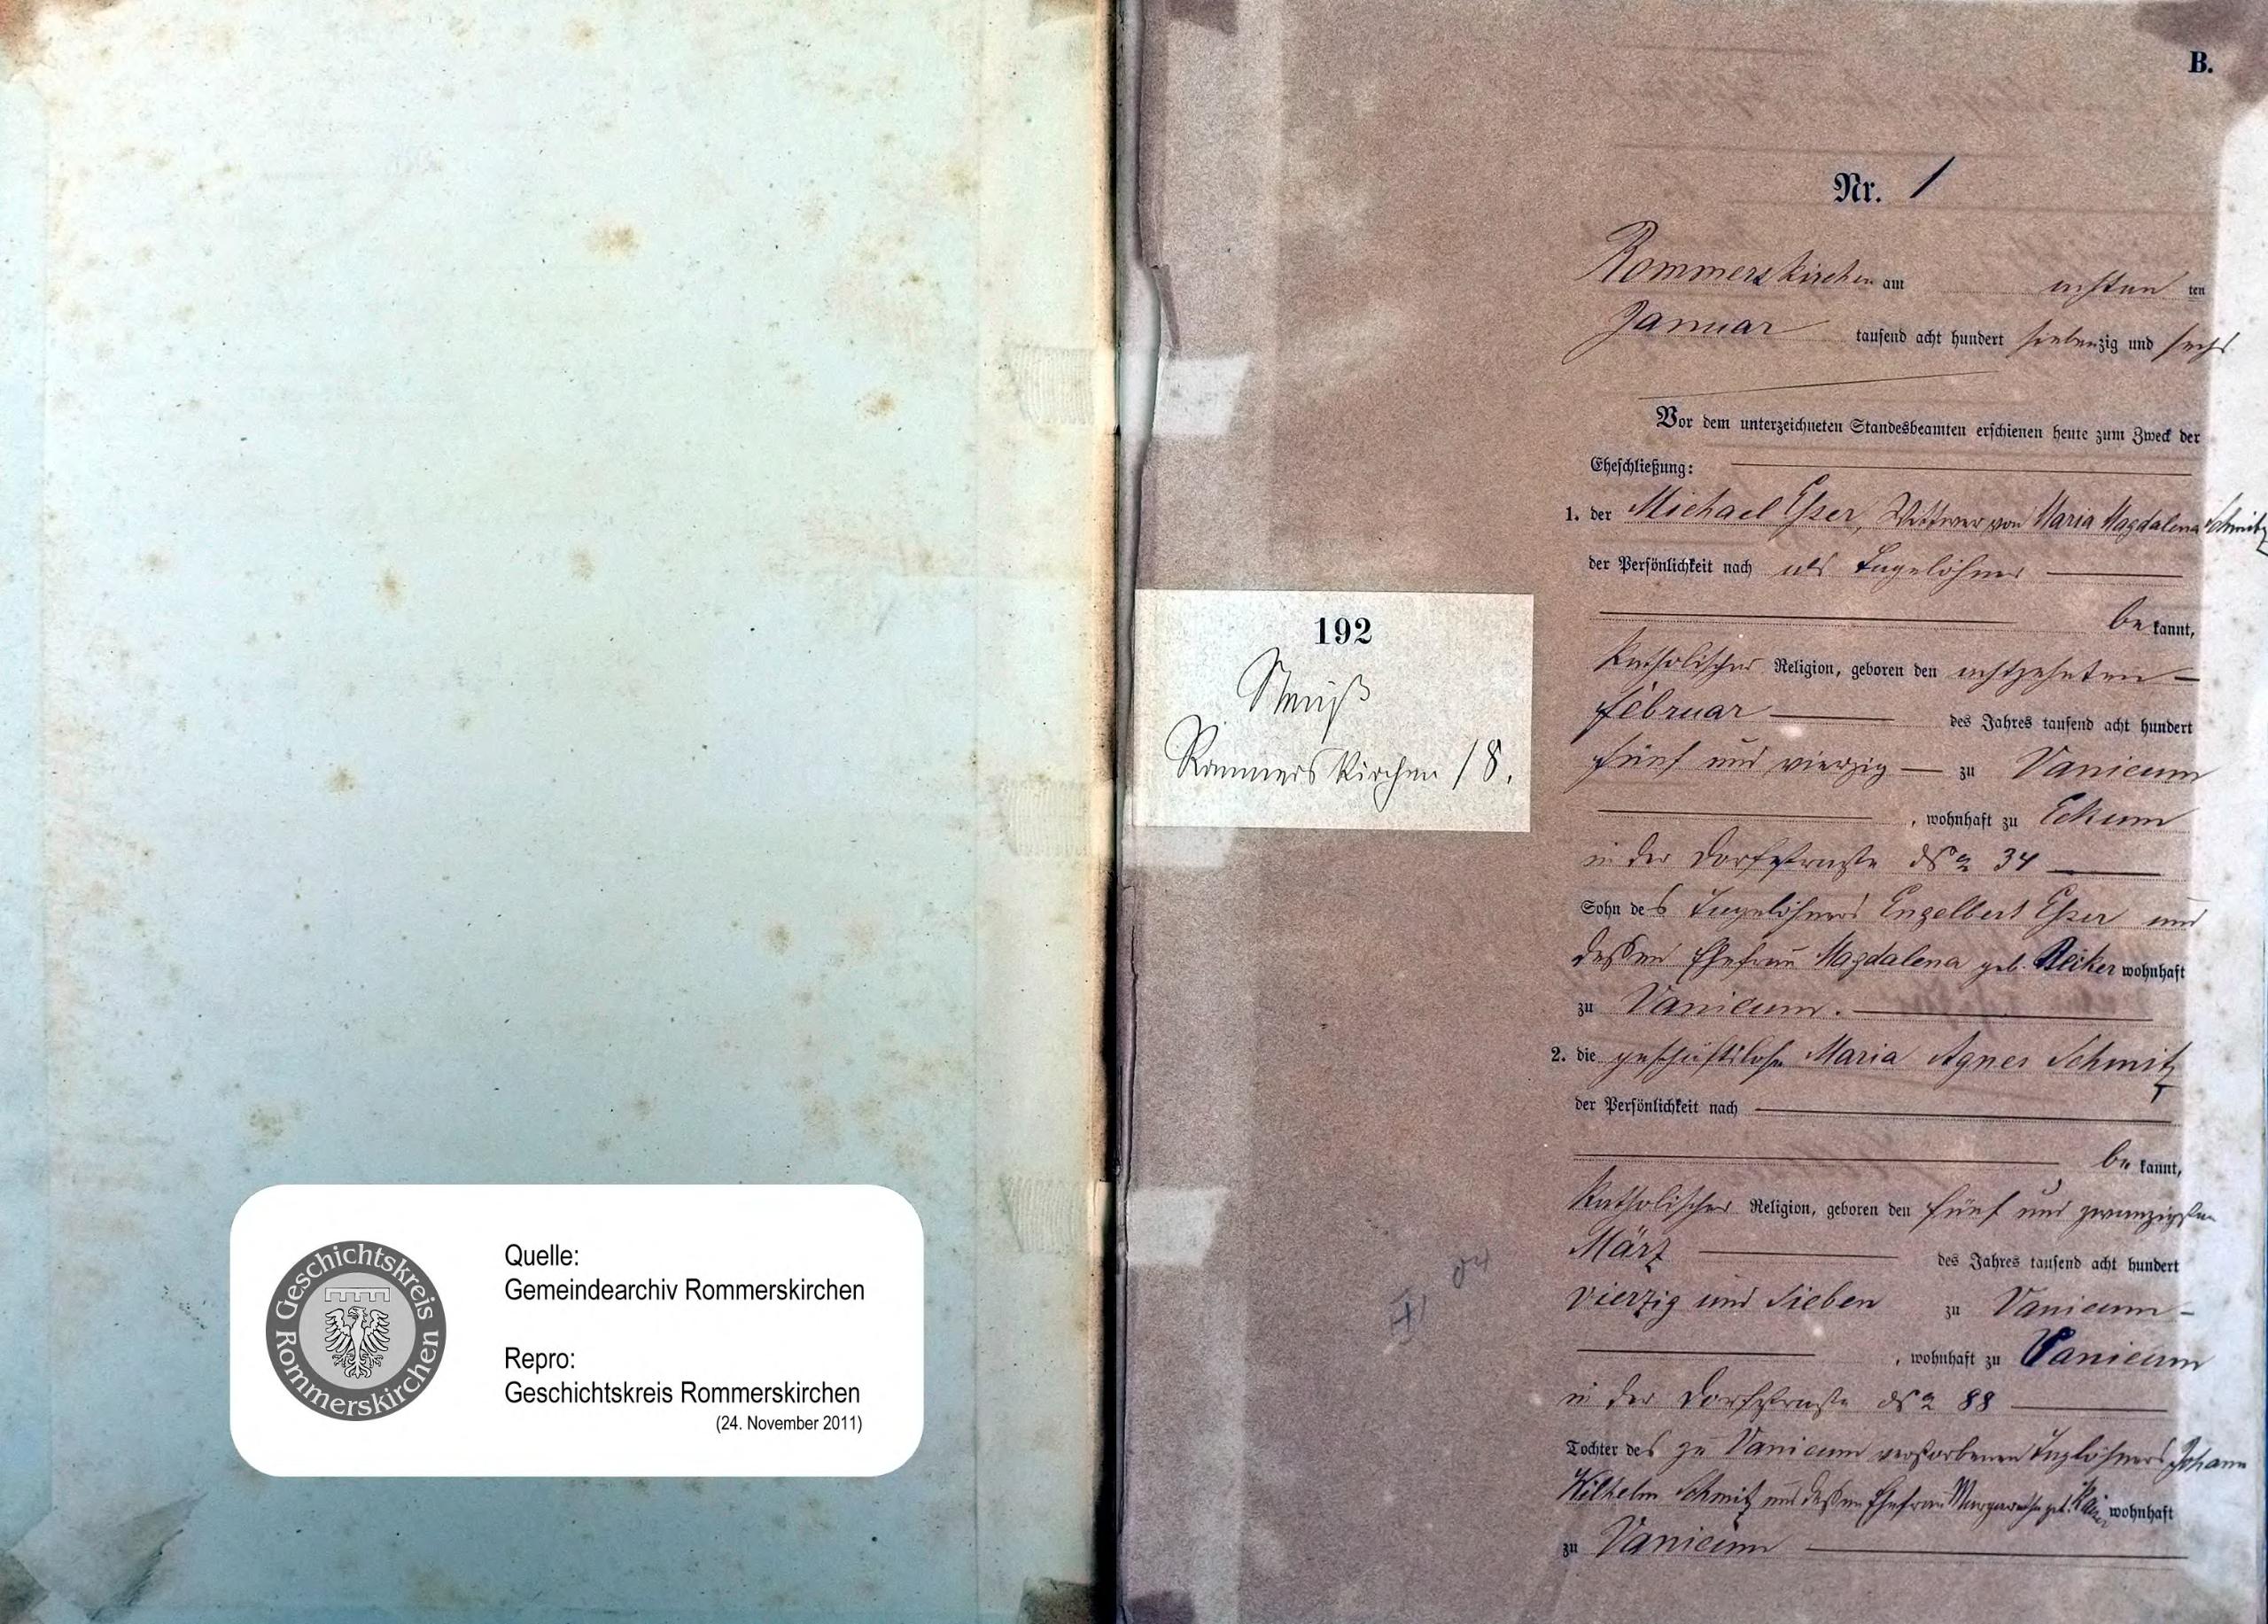 Geschichtskreis Rommerskirchen
Quelle:
Gemeindearchiv Rommerskirchen
Repro:
Geschichtskreis Rommerskirchen
(24. November 2011)
192
Neuß
Rommerskirchen 18.
B.
Nr. 1
Rommerskirchen am achten ten
Januar tausend acht hundert siebenzig und sechs
Vor dem unterzeichneten Standesbeamten erschienen heute zum Zweck der
Eheschließung:
1. der Michael Esser, Wittwer von Maria Magdalena Schmitz
der Persönlichkeit nach als Tagelöhner
bekannt,
katholischer Religion, geboren den achtzehnten
Februar des Jahres tausend acht hundert
fünf und vierzig zu Vanicum
, wohnhaft zu Eckum
in der Dorfstraße 34
Sohn des Tagelöhners Engelbert Esser und
dessen Ehefrau Magdalena geb. wohnhaft
zu Vanicum.
2. die geschäftslose Maria Agnes Schmitz
der Persönlichkeit nach
bekannt,
katholischer Religion, geboren den fünf und zwanzigsten
März des Jahres tausend acht hundert
vierzig und sieben zu Vanicum
, wohnhaft zu Vanicum
in der Dorfstraße 88
Tochter des zu Vanicum verstorbenen Tagelöhners Johann
Wilhelm Schmitz und dessen Ehefrau Margaretha geb. wohnhaft
zu Vanicum